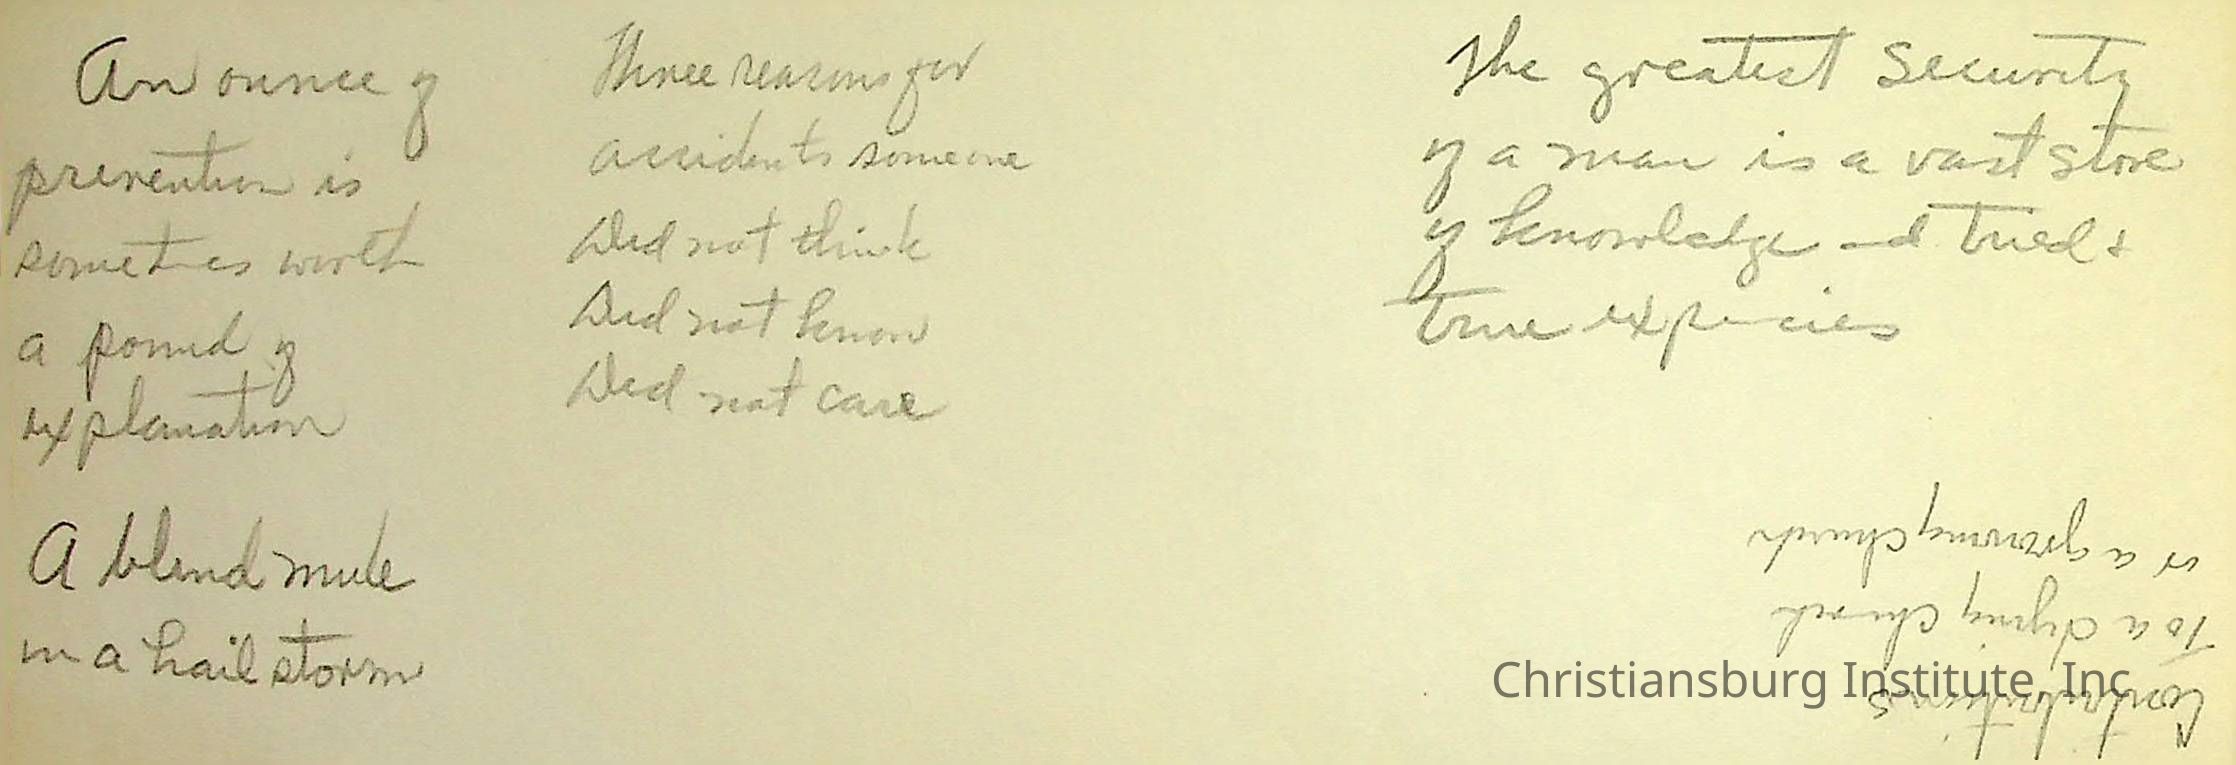 An ounce of
prevention is
sometimes worth
a pound of
explanation
A blind mule
in a hail storm
Three reasons for
accidents someone
Did not think
Did not know
Did not care
The greatest Security
of a man is a vast store
of knowledge and tried +
true expericies
Contributions
To a dying Church
or a growing Church
Christiansburg Institute, Inc